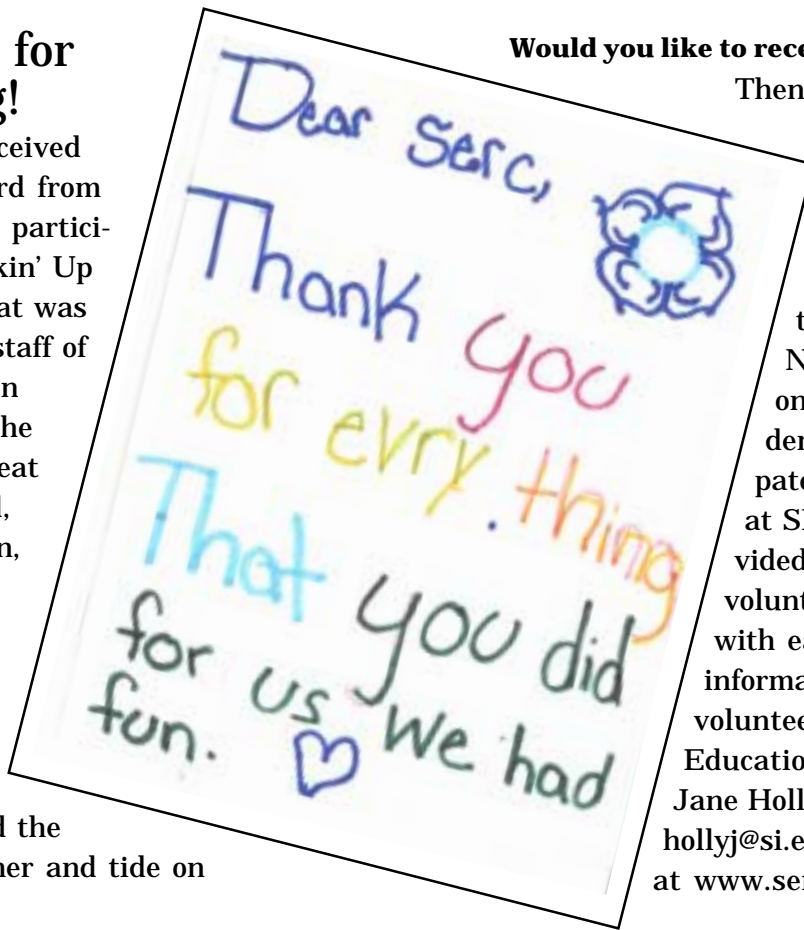 for
g!
ceived
rd from
partici-
kin' Up
at was
staff of
n
he
eat
l,
n,
d the
ner and tide on
Dear Serc,
Thank you
for evry.thing
That you did
for us We had
fun.
Would you like to rece
Then
t
N
on
der
pate
at S
vided
volunt
with ea
informa
voluntee
Educatio
Jane Holl
hollyj@si.e
at www.ser